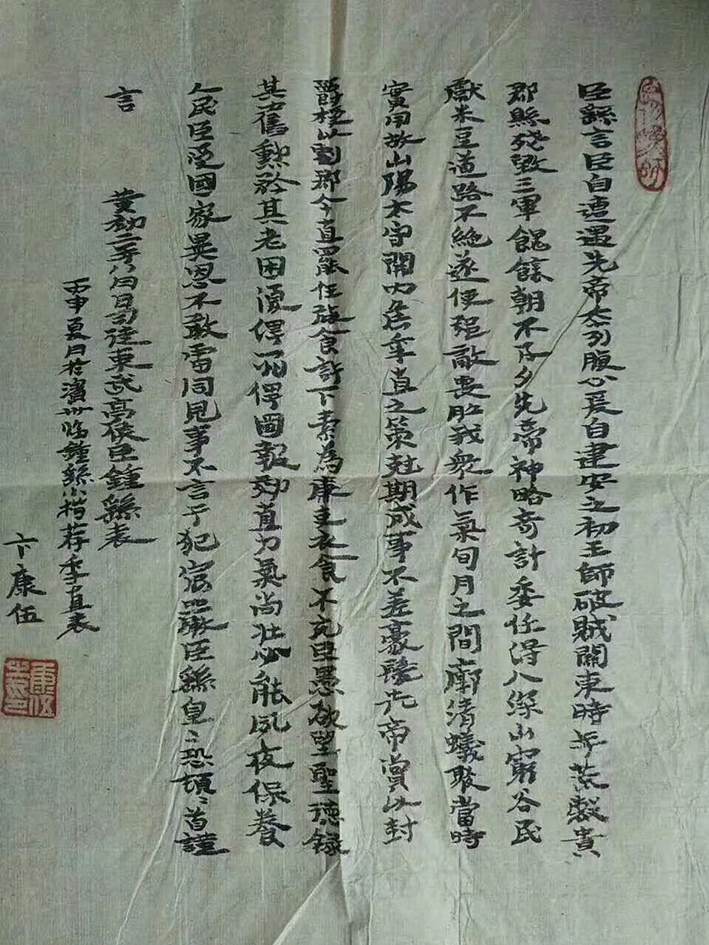 臣繇言臣自遭遇先帝忝列腹心爰自建安之初王師破賊關東時年荒穀貴
郡縣殘毀三軍餽饟朝不及夕先帝神略奇計委任得人深山窮谷民
獻米豆道路不絕遂使強敵喪膽我眾作氣旬月之間廓清蟻聚當時
實用故山陽太守關內侯季直之策剋期成事不差豪髮先帝賞以封
爵授以劇郡今直罷任旅食許下素為廉吏衣食不充臣愚欲望聖德錄
其舊勳矜其老困復俾一州俾圖報效直力氣尚壯必能夙夜保養
人民臣受國家異恩不敢雷同見事不言干犯宸嚴臣繇皇〻恐頓〻首謹
言
黃初二年八月日司徒東武亭侯臣鍾繇表
丙申夏月於濱州臨鍾繇小楷荐季直表
卞康伍